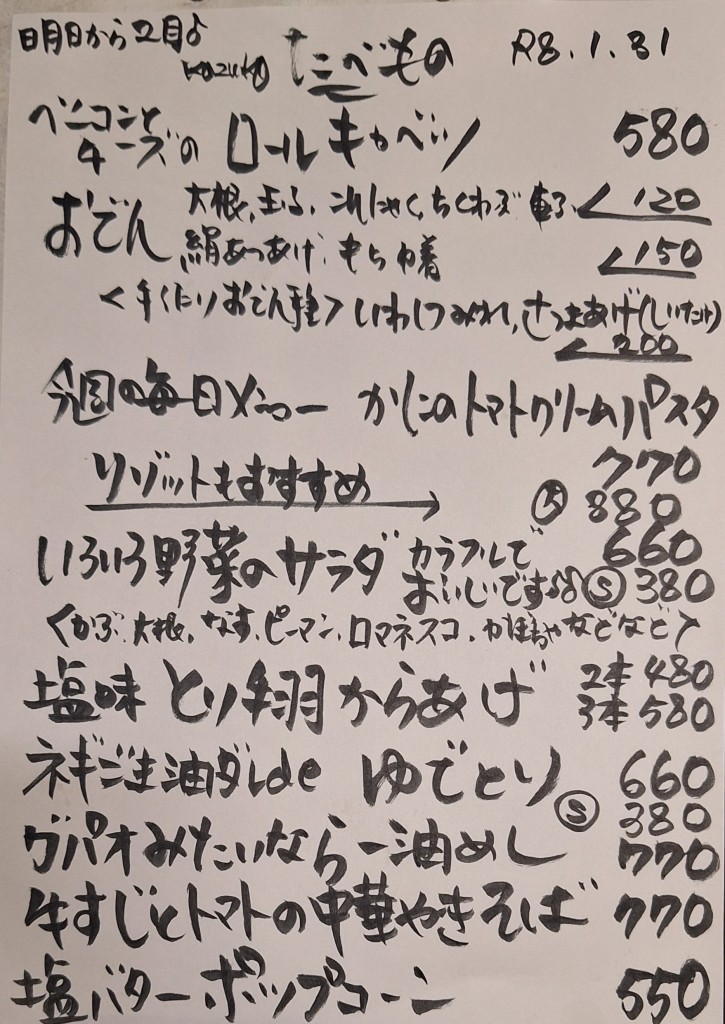 明日から2月♪
kazuko たべもの R8.1.31
ベーコンとチーズの ロールキャベツ 580
おでん 大根、玉子、こんにゃく、ちくわぶ 120
絹あつあげ、もち巾着 150
<手作りおでん種> いわしつみれ、さつまあげ(しいたけ)
200
今週の毎日メニュー かにのトマトクリームパスタ
770
リゾットもおすすめ 大 880
いろいろ野菜のサラダ カラフルでおいしいです♪♪ 660 S 380
<かぶ、大根、なす、ピーマン、ロマネスコ、かぼちゃなどなど>
塩味 とり手羽からあげ 2本 480 3本 580
ネギごま油ダレde ゆでとり 660
S 380
ガパオみたいならー油めし 770
牛すじとトマトの中華やきそば 770
塩バターポップコーン 550